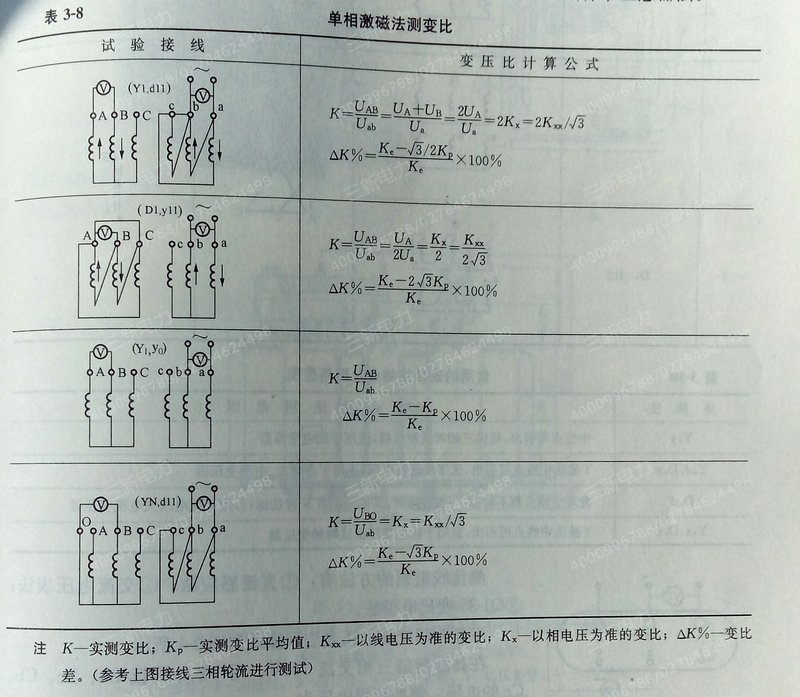 表 3-8
单相激磁法测变比
试 验 接 线
变 压 比 计 算 公 式
(Y1,d11)
V
V
A B C c b a
K=U_AB/U_ab=(U_A+U_B)/U_a=2U_A/U_a=2K_x=2K_xx/√3
ΔK%=(K_e-√3/2K_p)/K_e×100%
(D1,y11)
V
V
A B C c b a
K=U_AB/U_ab=U_A/2U_a=K_x/2=K_xx/2√3
ΔK%=(K_e-2√3K_p)/K_e×100%
(Y1,y0)
V
V
A B C c b a
K=U_AB/U_ab
ΔK%=(K_e-K_p)/K_e×100%
(YN,d11)
V
V
O A B C c b a
K=U_BO/U_ab=K_x=K_xx/√3
ΔK%=(K_e-√3K_p)/K_e×100%
注 K—实测变比；K_p—实测变比平均值；K_xx—以线电压为准的变比；K_x—以相电压为准的变比；ΔK%—变比
差。(参考上图接线三相轮流进行测试)
三新电力
4000986788/02784624498